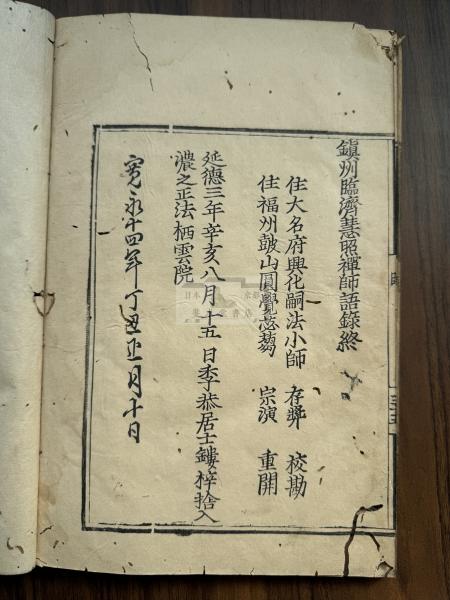 鎮州臨濟慧照禪師語錄終
住大名府興化嗣法小師 存奬 校勘
住福州鼓山圓覺苾蒭 宗演 重開
延德三年辛亥八月十五日李恭居士鏤梓捨入
濃之正法栖雲院
寛永十四年丁丑正月十日